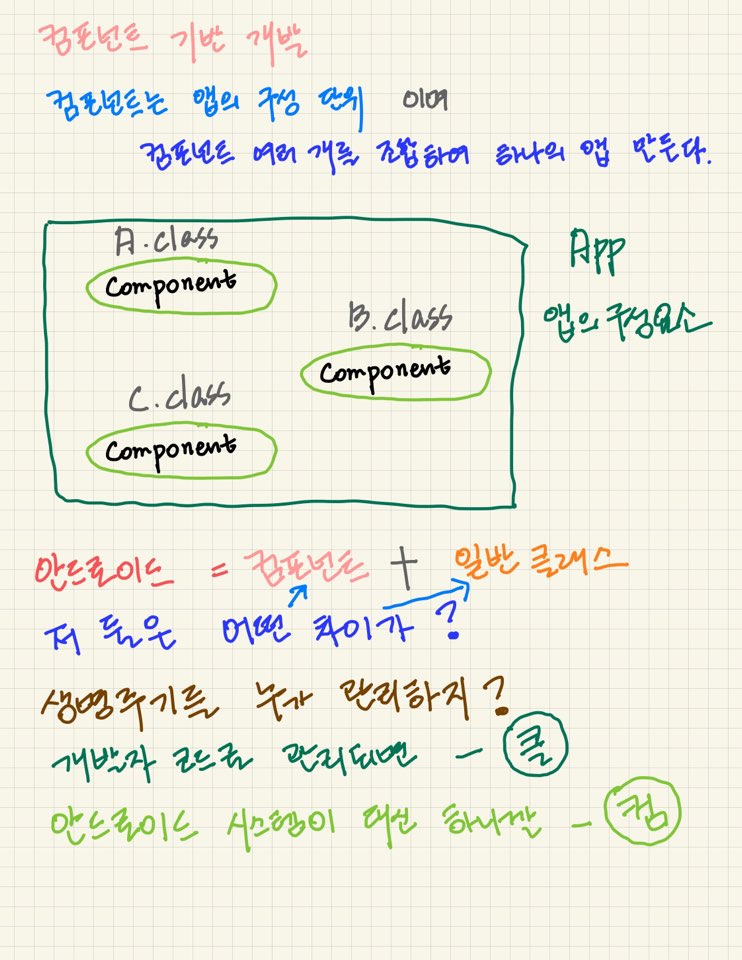 컴포넌트 기반 개발
컴포넌트는 앱의 구성 단위 이며
컴포넌트 여러 개를 조합하여 하나의 앱 만든다.
A.class
Component
B.class
Component
C.class
Component
App
앱의 구성요소
안드로이드 = 컴포넌트 + 일반 클래스
저 둘은 어떤 차이가 ?
생명주기를 누가 관리하지 ?
개발자 코드로 관리되면 - 클
안드로이드 시스템이 대신 하니깐 - 컴